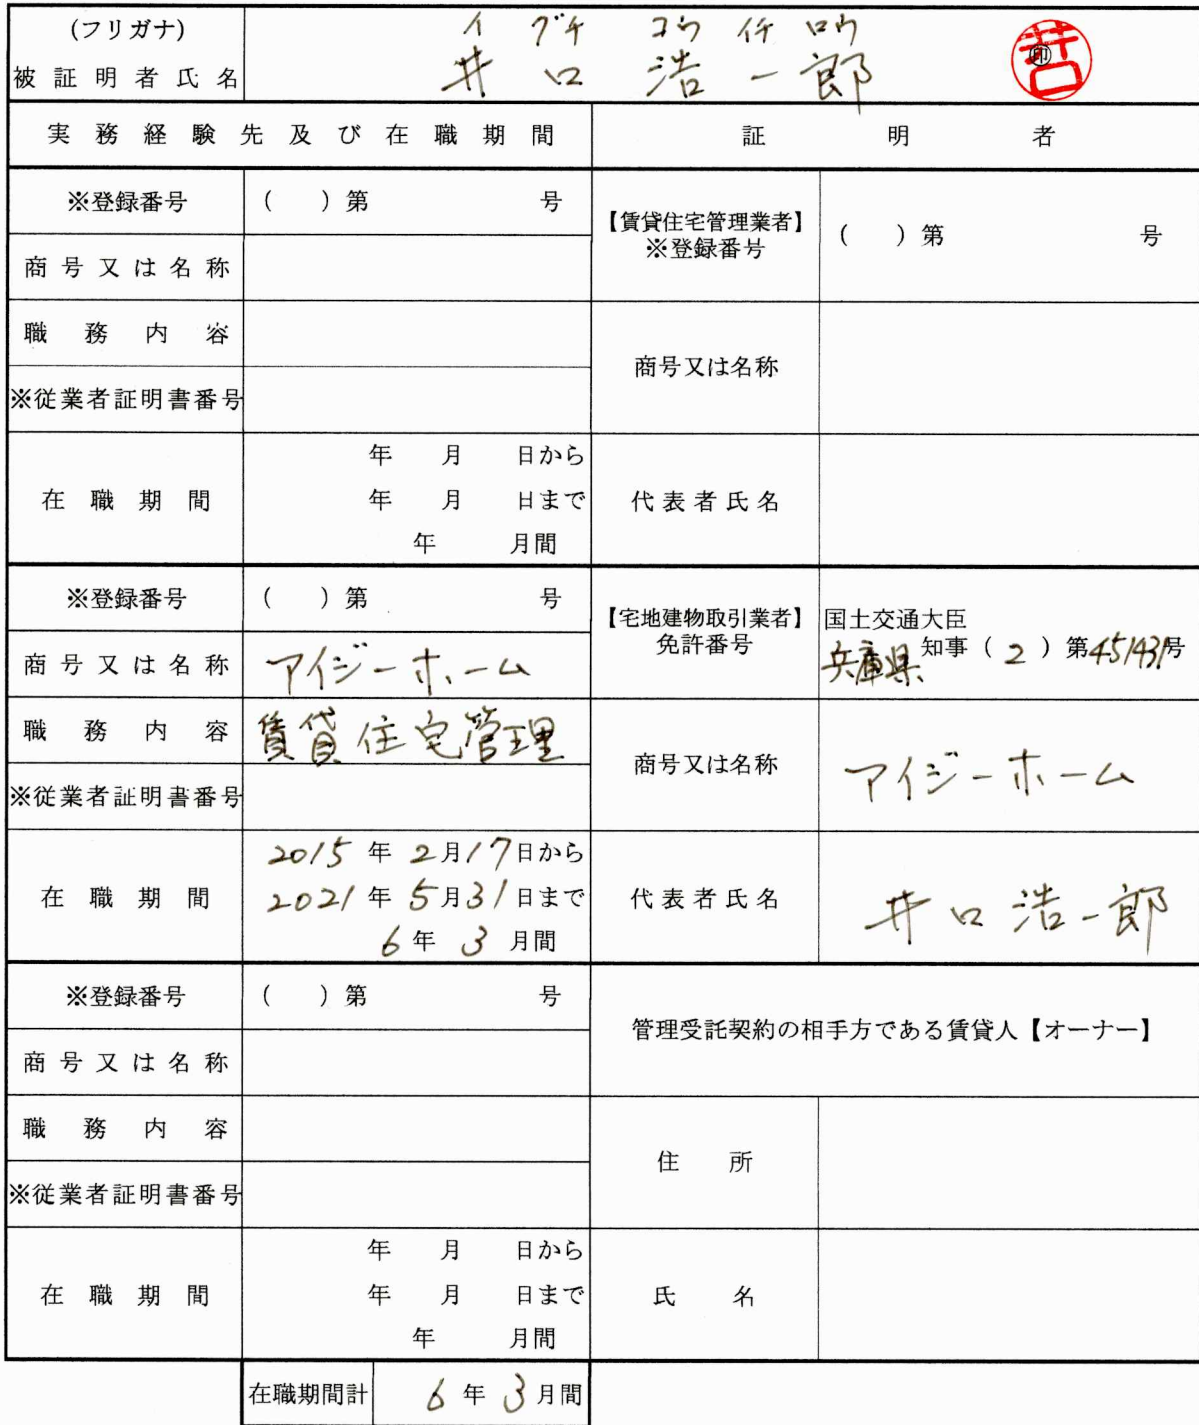 (フリガナ) イ グチ コウ イチ ロウ
被証明者氏名 井口 浩一郎 ㊞ 井口
実務経験先及び在職期間 証明者
※登録番号 ( )第 号
商号又は名称
職務内容
※従業者証明書番号
在職期間 年 月 日から
年 月 日まで
年 月間
【賃貸住宅管理業者】
※登録番号 ( )第 号
商号又は名称
代表者氏名
※登録番号 ( )第 号
商号又は名称 アイジーホーム
職務内容 賃貸住宅管理
※従業者証明書番号
在職期間 2015年2月17日から
2021年5月31日まで
6年3月間
【宅地建物取引業者】 国土交通大臣
免許番号 兵庫県知事(2)第451431号
商号又は名称 アイジーホーム
代表者氏名 井口浩一郎
※登録番号 ( )第 号
商号又は名称
職務内容
※従業者証明書番号
在職期間 年 月 日から
年 月 日まで
年 月間
管理受託契約の相手方である賃貸人【オーナー】
住所
氏名
在職期間計 6年3月間